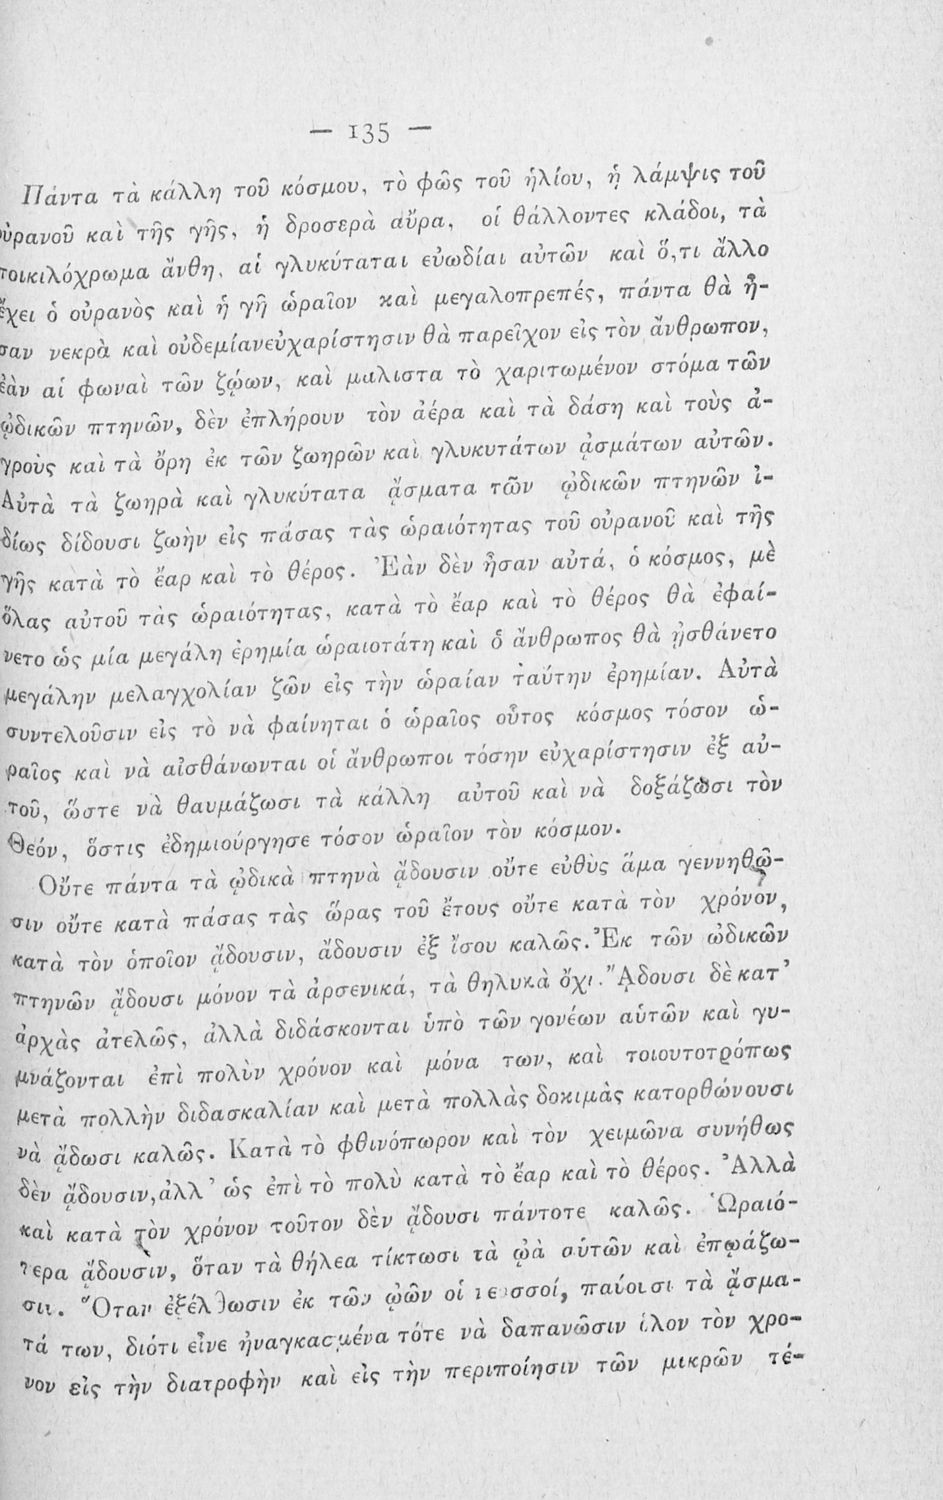 — 135 —
Πάντα τὰ κάλλη τοῦ κόσμου, τὸ φῶς τοῦ ἡλίου, ἡ λάμψις τοῦ
οὐρανοῦ καὶ τῆς γῆς, ἡ δροσερὰ αὔρα, οἱ θάλλοντες κλάδοι, τὰ
ποικιλόχρωμα ἄνθη, αἱ γλυκύταται εὐωδίαι αὐτῶν καὶ ὅ,τι ἄλλο
ἔχει ὁ οὐρανὸς καὶ ἡ γῆ ὡραῖον καὶ μεγαλοπρεπές, πάντα θὰ ἦ-
σαν νεκρὰ καὶ οὐδεμίανεὐχαρίστησιν θὰ παρεῖχον εἰς τὸν ἄνθρωπον,
ἐὰν αἱ φωναὶ τῶν ζῴων, καὶ μάλιστα τὸ χαριτωμένον στόμα τῶν
ᾠδικῶν πτηνῶν, δὲν ἐπλήρουν τὸν ἀέρα καὶ τὰ δάση καὶ τοὺς ἀ-
γροὺς καὶ τὰ ὄρη ἐκ τῶν ζωηρῶν καὶ γλυκυτάτων ᾀσμάτων αὐτῶν.
Αὐτὰ τὰ ζωηρὰ καὶ γλυκύτατα ᾄσματα τῶν ᾠδικῶν πτηνῶν ἰ-
δίως δίδουσι ζωὴν εἰς πάσας τὰς ὡραιότητας τοῦ οὐρανοῦ καὶ τῆς
γῆς κατὰ τὸ ἔαρ καὶ τὸ θέρος. Ἐὰν δὲν ἦσαν αὐτά, ὁ κόσμος, μὲ
ὅλας αὐτοῦ τὰς ὡραιότητας, κατὰ τὸ ἔαρ καὶ τὸ θέρος θὰ ἐφαί-
νετο ὡς μία μεγάλη ἐρημία ὡραιοτάτη καὶ ὁ ἄνθρωπος θὰ ᾐσθάνετο
μεγάλην μελαγχολίαν ζῶν εἰς τὴν ὡραίαν ταύτην ἐρημίαν. Αὐτὰ
συντελοῦσιν εἰς τὸ νὰ φαίνηται ὁ ὡραῖος οὗτος κόσμος τόσον ὡ-
ραῖος καὶ νὰ αἰσθάνωνται οἱ ἄνθρωποι τόσην εὐχαρίστησιν ἐξ αὐ-
τοῦ, ὥστε νὰ θαυμάζωσι τὰ κάλλη αὐτοῦ καὶ νὰ δοξάζωσι τὸν
Θεόν, ὅστις ἐδημιούργησε τόσον ὡραῖον τὸν κόσμον.
Οὔτε πάντα τὰ ᾠδικὰ πτηνὰ ᾄδουσιν οὔτε εὐθὺς ἅμα γεννηθῶ-
σιν οὔτε κατὰ πάσας τὰς ὥρας τοῦ ἔτους οὔτε κατὰ τὸν χρόνον,
κατὰ τὸν ὁποῖον ᾄδουσιν, ᾄδουσιν ἐξ ἴσου καλῶς. Ἐκ τῶν ὠδικῶν
πτηνῶν ᾄδουσι μόνον τὰ ἀρσενικά, τὰ θηλυκὰ ὄχι. ᾌδουσι δὲ κατ'
ἀρχὰς ἀτελῶς, ἀλλὰ διδάσκονται ὑπὸ τῶν γονέων αὑτῶν καὶ γυ-
μνάζονται ἐπὶ πολὺν χρόνον καὶ μόνα των, καὶ τοιουτοτρόπως
μετὰ πολλὴν διδασκαλίαν καὶ μετὰ πολλὰς δοκιμὰς κατορθώνουσι
νὰ ᾄδωσι καλῶς. Κατὰ τὸ φθινόπωρον καὶ τὸν χειμῶνα συνήθως
δὲν ᾄδουσιν, ἀλλ' ὡς ἐπὶ τὸ πολὺ κατὰ τὸ ἔαρ καὶ τὸ θέρος. Ἀλλὰ
καὶ κατὰ τὸν χρόνον τοῦτον δὲν ᾄδουσι πάντοτε καλῶς. Ὡραιό-
τερα ᾄδουσιν, ὅταν τὰ θήλεα τίκτωσι τὰ ᾠὰ αὑτῶν καὶ ἐπῳάζω-
σιν. Ὅταν ἐξέλθωσιν ἐκ τῶν ᾠῶν οἱ νεοσσοί, παύουσι τὰ ᾄσμα-
τά των, διότι εἶνε ἠναγκασμένα τότε νὰ δαπανῶσιν ὅλον τὸν χρό-
νον εἰς τὴν διατροφὴν καὶ εἰς τὴν περιποίησιν τῶν μικρῶν τέ-